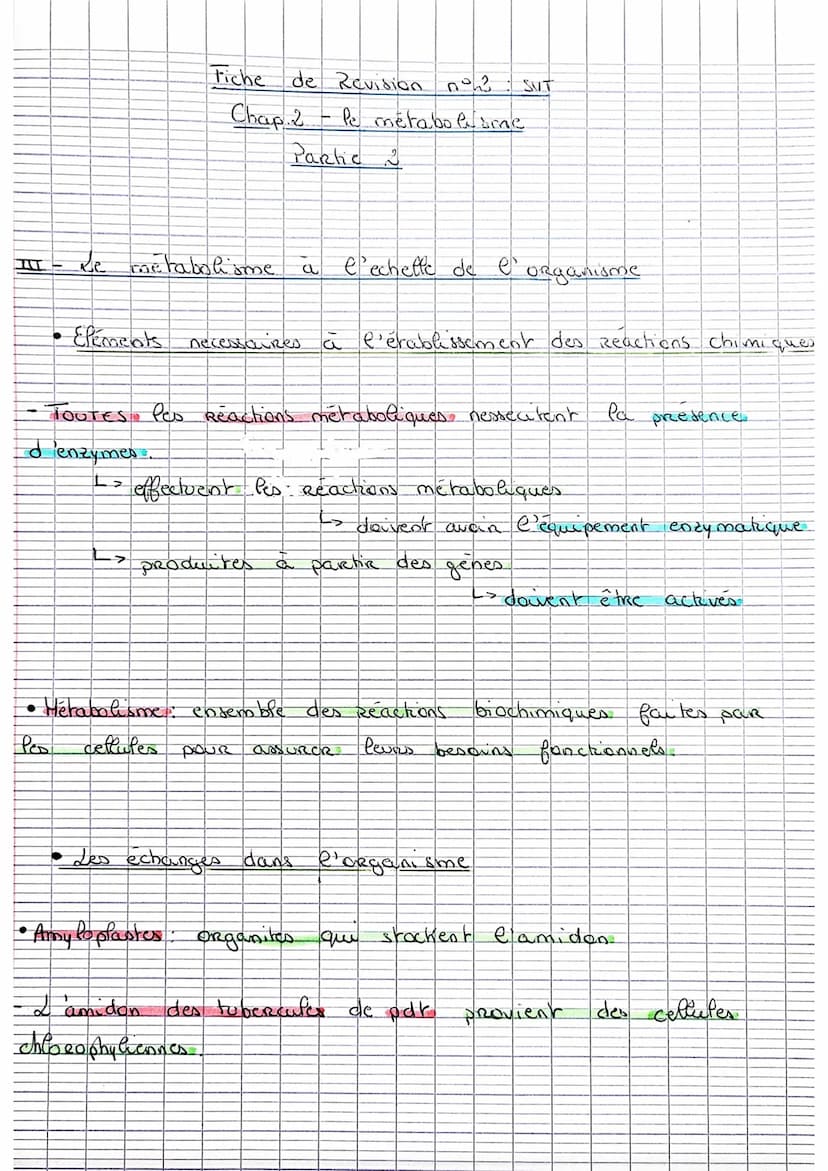 Fiche de Revision n°2 : SVT
Chap.2 - le métabolisme
Partie 2
III - Le métabolisme à l'echelle de l'organisme
• Eléments necessaires à l'établissement des réactions chimiques
- TOUTES les réactions métaboliques nessecitent la présence
d'enzymes.
↳ effectuent les réactions métaboliques
↳ doivent avoir l'équipement enzymatique
↳ produites à partir des gènes
↳ doivent être activés
• Métabolisme : ensemble des réactions biochimiques faites par
les cellules pour assurer leurs besoins fonctionnels.
• Les échanges dans l'organisme
• Amyloplastes : organites qui stockent l'amidon
- L'amidon des tubercules de pdt provient des cellules
chlorophyliennes.